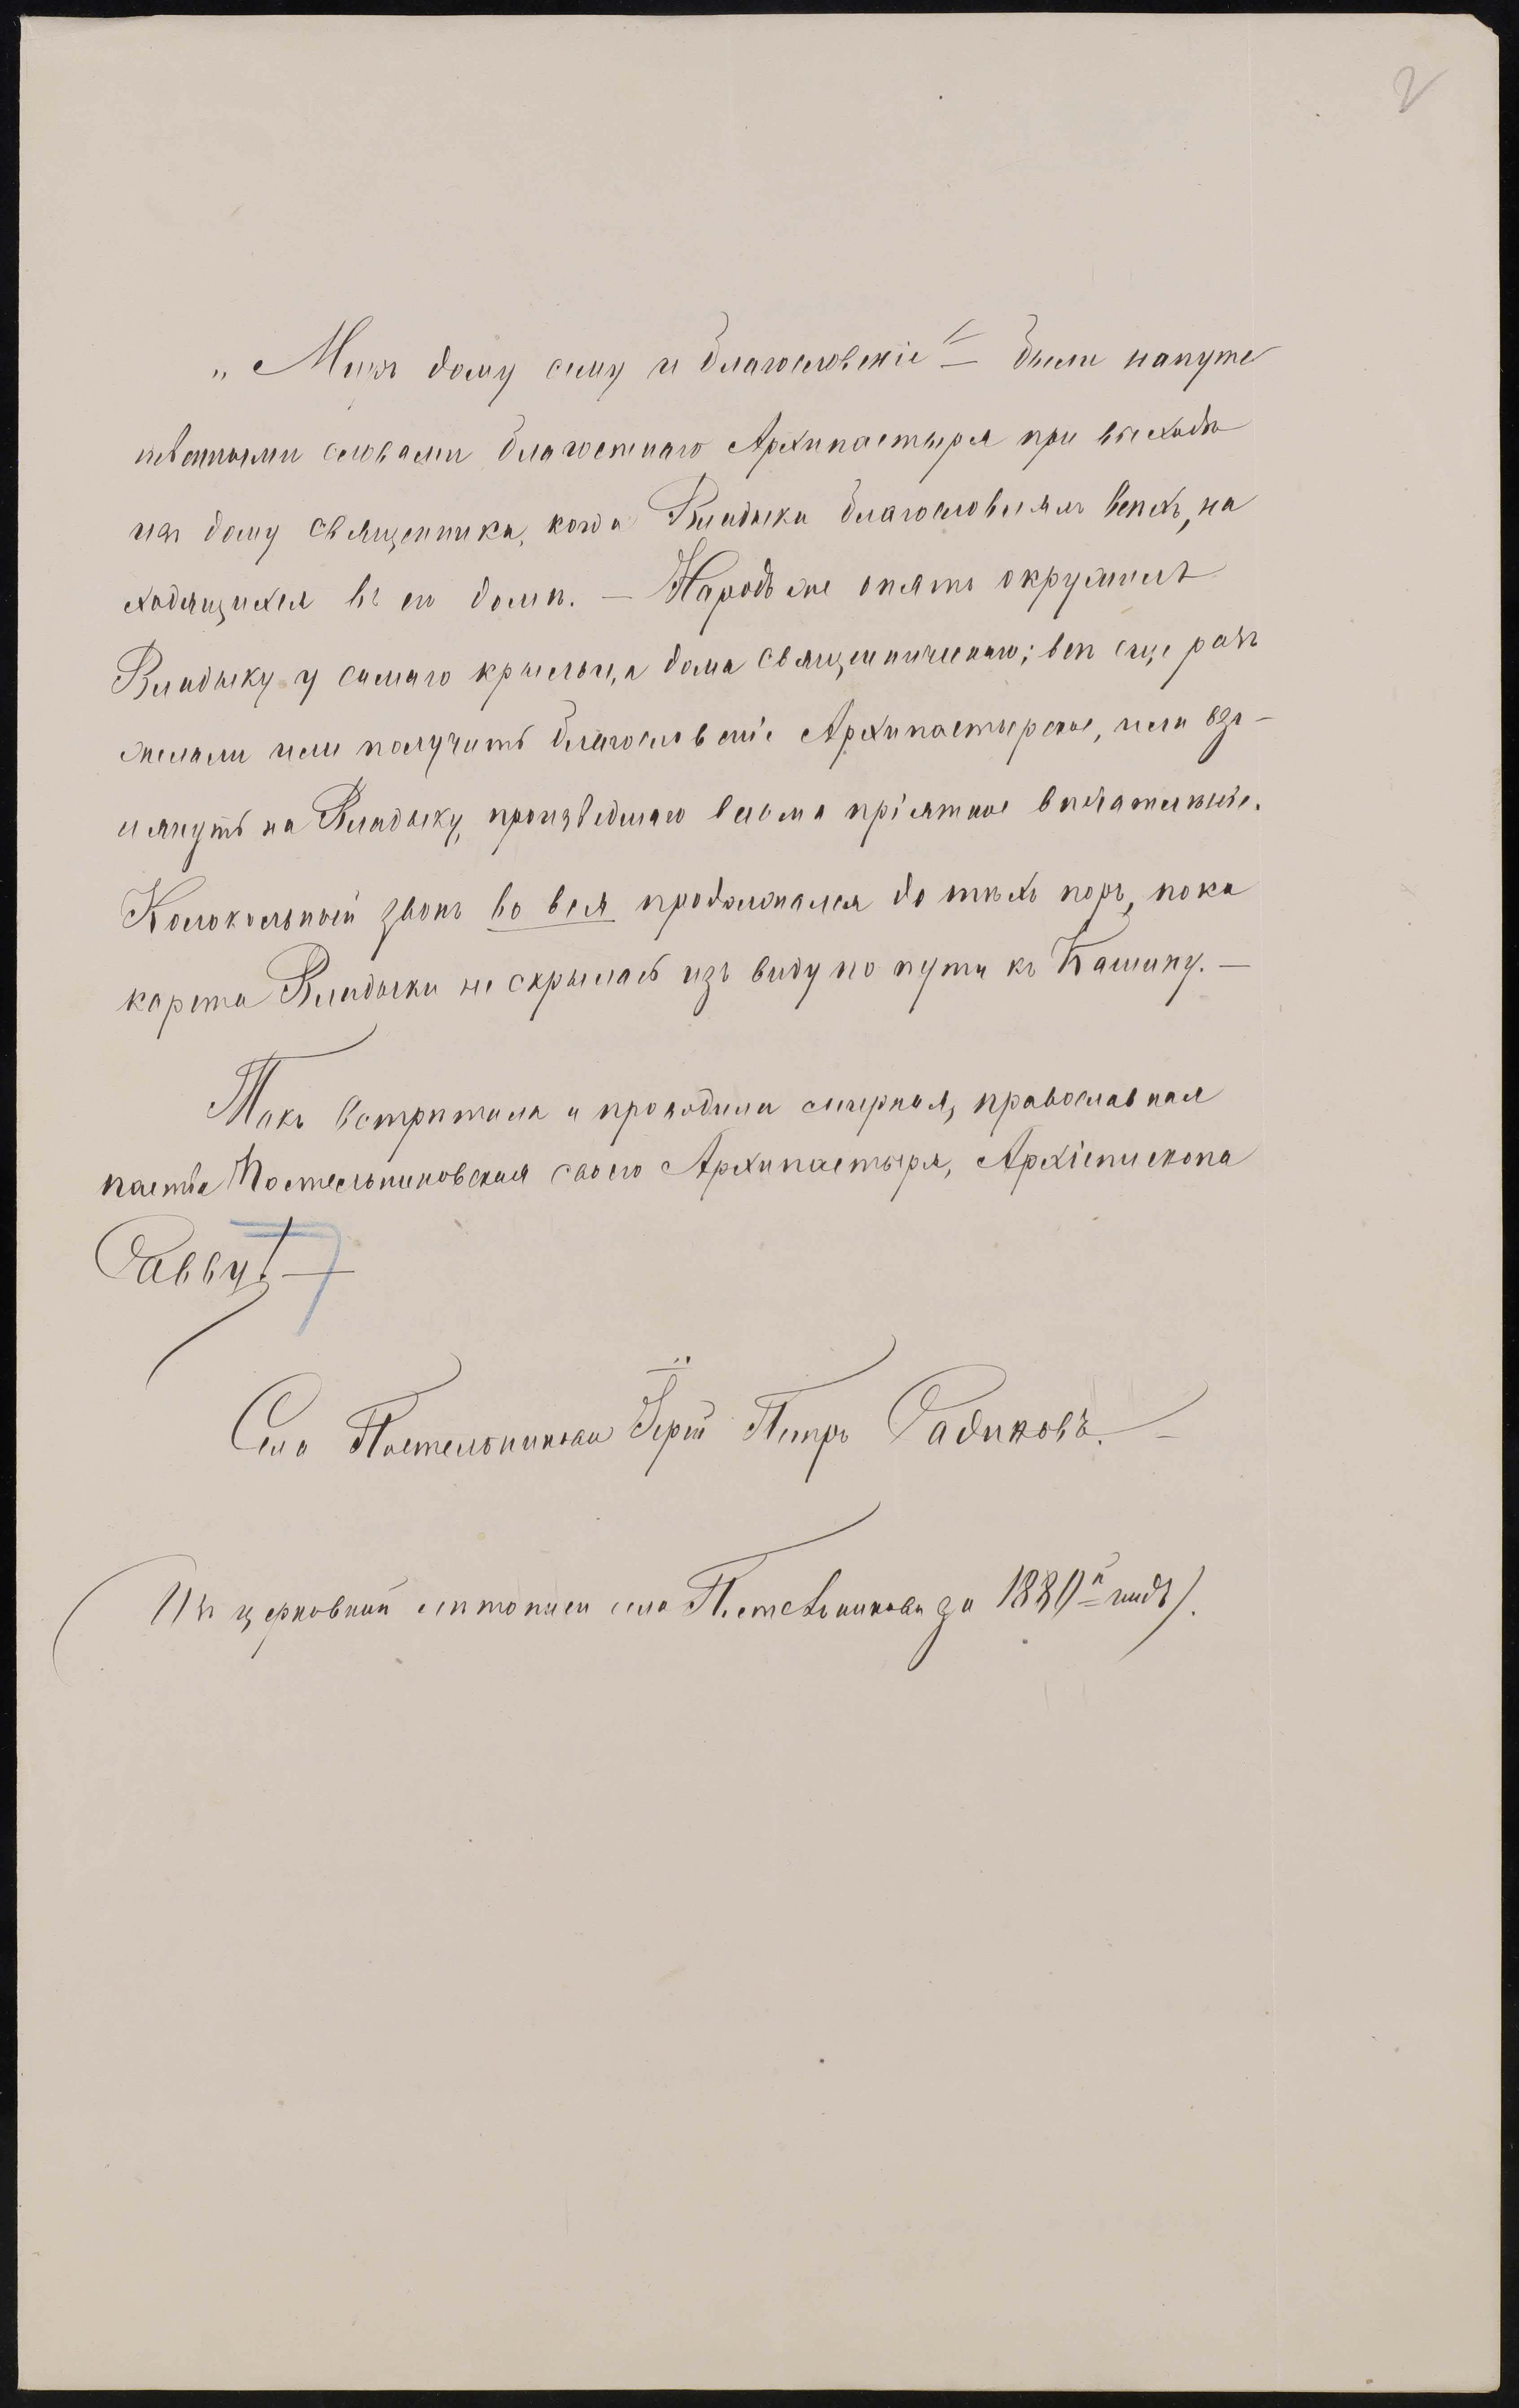 2
„Миръ дому сему и благословенiе“ — были напутс
твенными словами благостнаго Архипастыря при выходѣ
изъ дому священника, когда Владыка благословлялъ всѣхъ, на
ходящихся въ его домѣ. — Народъ же опять окружилъ
Владыку у самаго крыльца дома священническаго; всѣ еще разъ
желали или получить благословенiе Архипастырское, или взг-
лянуть на Владыку, произведшаго весьма прiятное впечатленiе.
Колокольный звонъ во вся продолжался до тѣхъ поръ, пока
карета Владыки не скрылась изъ виду по пути къ Кашину. —
Такъ встрѣтила и проводила смирная, православная
паства Постельниковская своего Архипастыря, Архiепископа
Савву! —
Села Постельникова Iерей Петръ Садиковъ. —
(Изъ церковной лѣтописи села Постельникова за 1880й годъ).